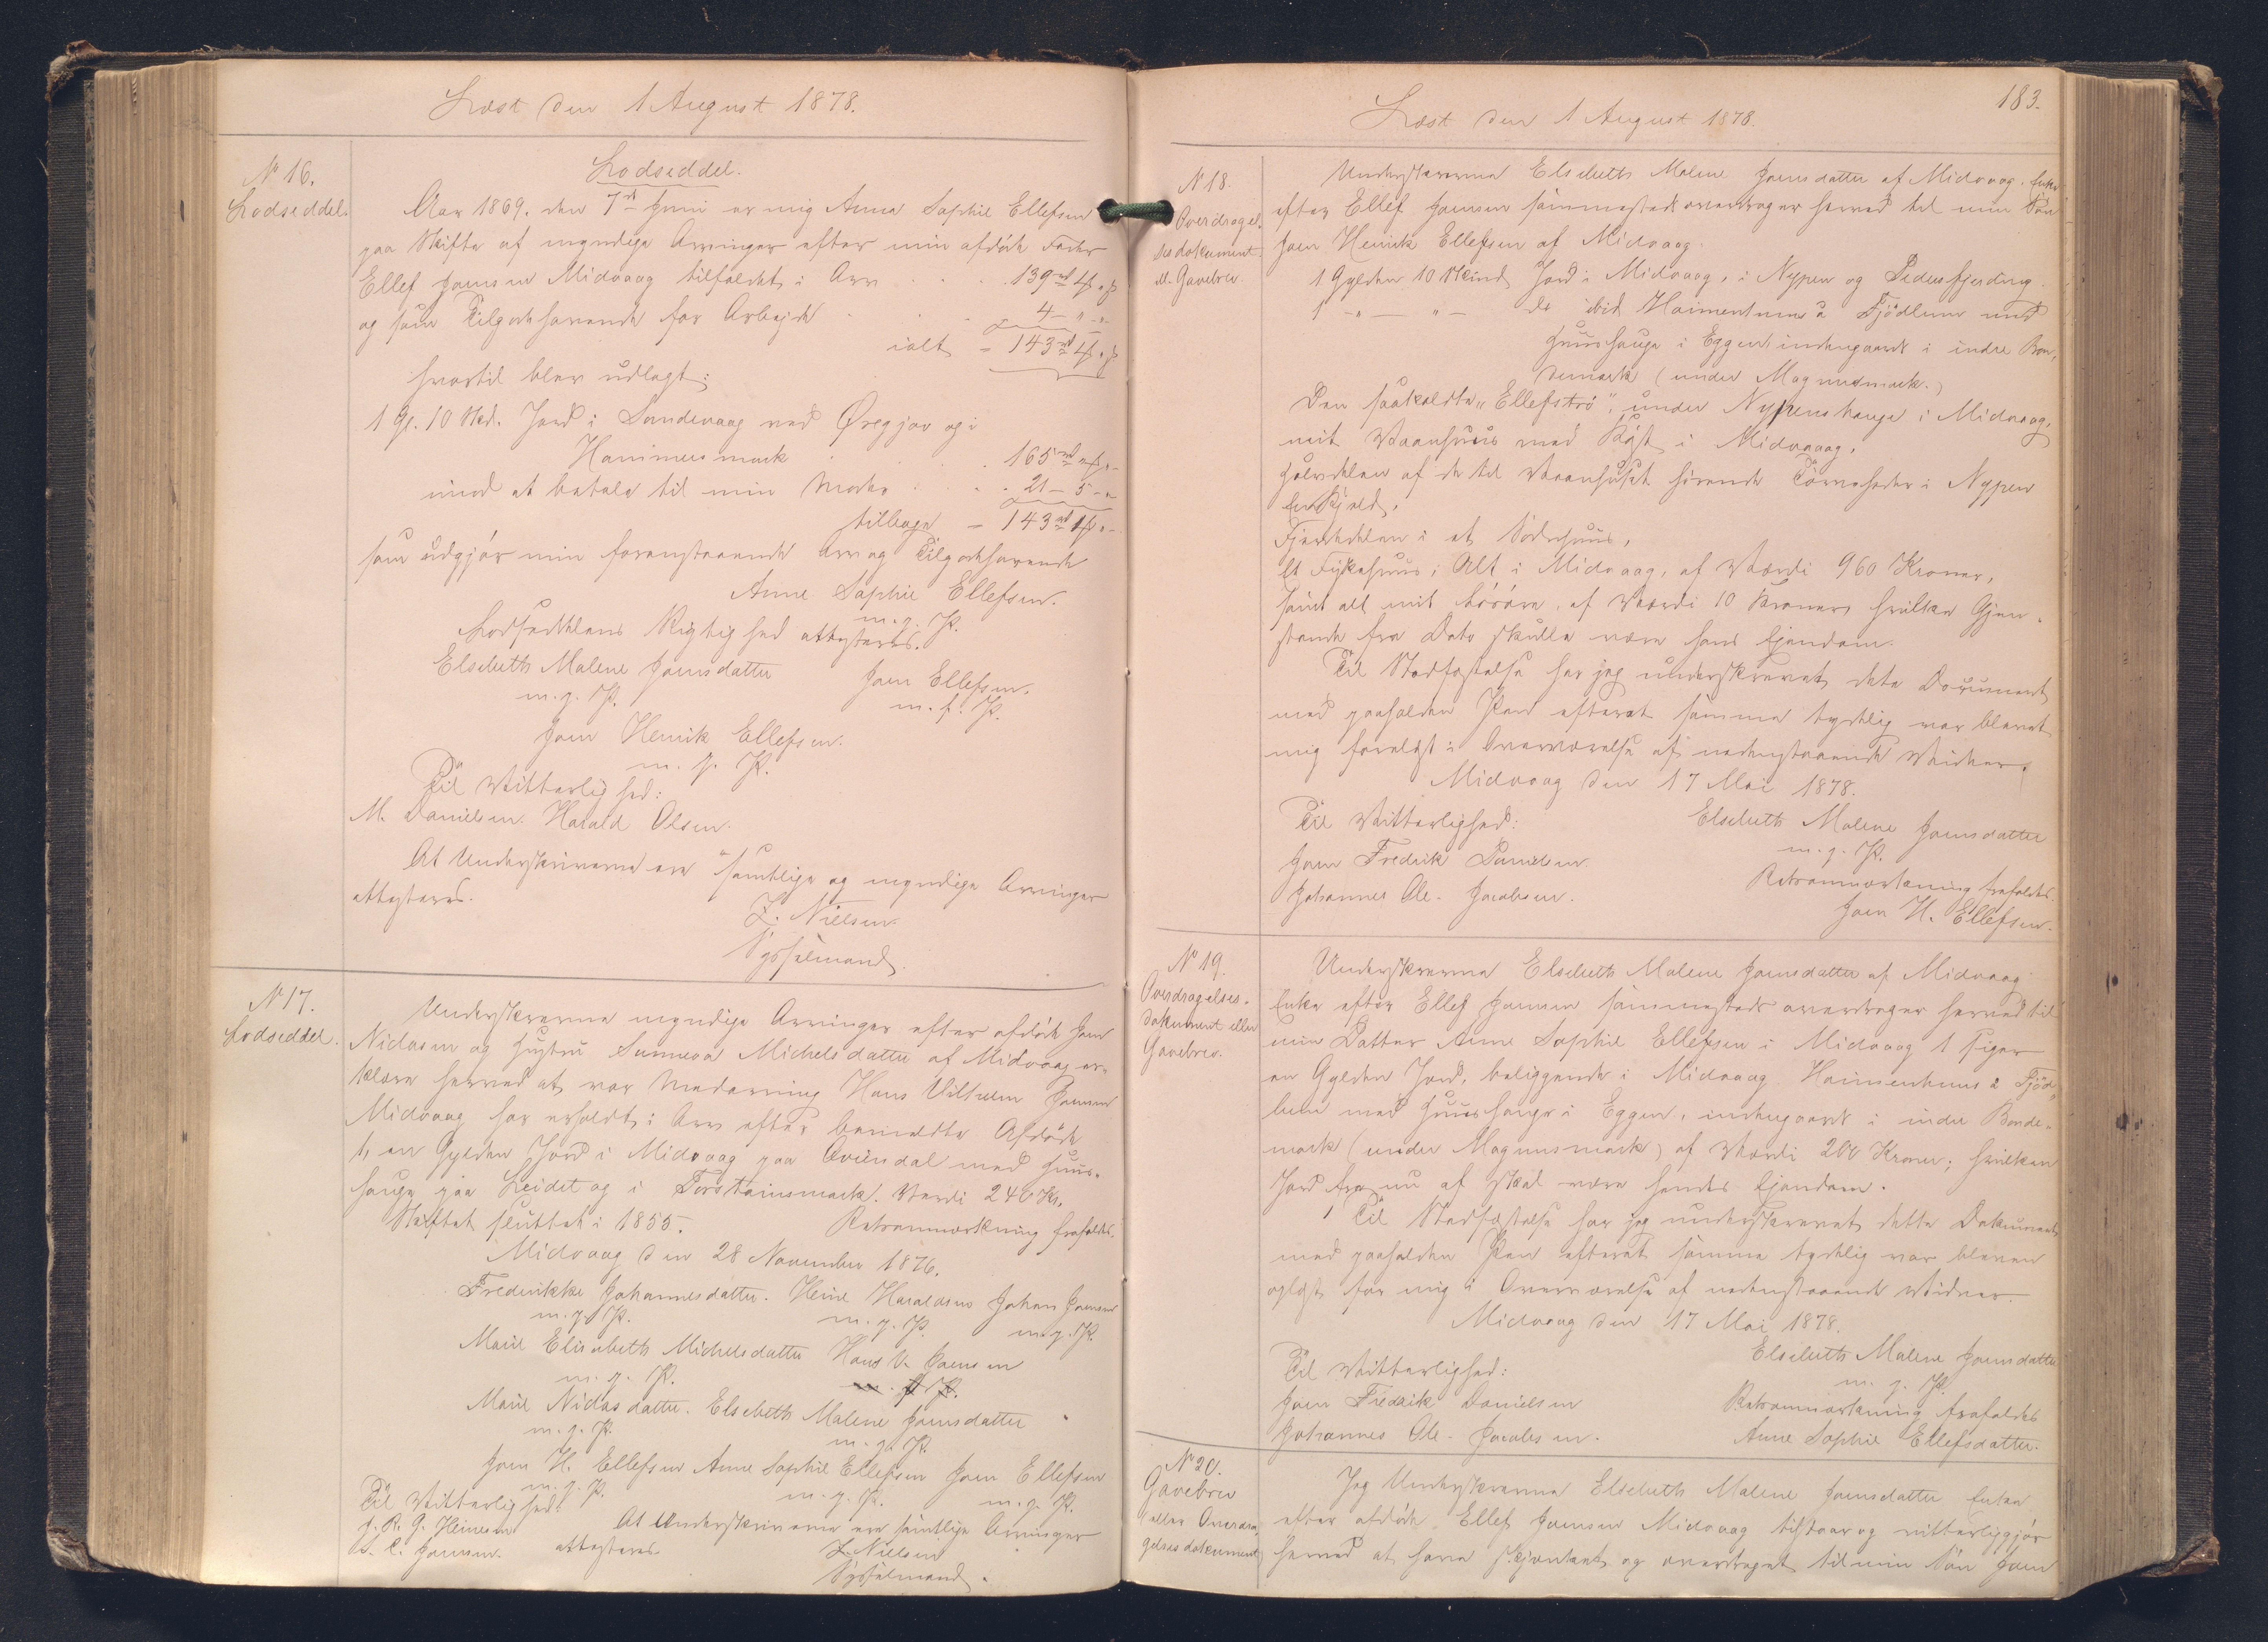 Læst den 1 August 1878.
No 16.
Lodseddel.
Lodseddel.
Aar 1869. den 7de Juni er mig Anna Sophie Ellefsen
paa Skifte af myndige Arvinger efter min afdöde Fader
Ellef Joensen Midvaag tilfaldet i Arv . . . 139 rd 4 ß
og som Tilgodehavende for Arbejde . . . 4 - " - "
ialt = 143 rd 4 ß
hvortil blev udlagt:
1 Gl. 10 Skd. Jord i Sandevaag ved Øregjov og i
Hammersmark . . . 165 rd
imod at betale til min Moder . . . 21 - 5 -
tilbage = 143 rd
som udgjör min foranstaaende Arv og Tilgodehavende
Anne Sophie Ellefsen.
m. g. P.
Lodseddelens Rigtighed attesteres.
Elsebeth Malene Joensdatter
Joen Ellefsen.
m. g. P.
m. f. P.
Joen Henrik Ellefsen.
m. g. P.
Til Vitterlighed:
M. Danielsen. Harald Olsen.
At Underskriverne ere samtlige og myndige Arvinger
attesteres.
Z. Nielsen.
Sysselmand.
No 17.
Lodseddel.
Underskrevne myndige Arvinger efter afdöde Joen
Niclasen og Hustru Sunneva Michelsdatter af Midvaag er-
klære herved at vor Medarving Hans Vilhelm Joensen
Midvaag har erholdt i Arv efter bemeldte Afdöde
1, en Gylden Jord i Midvaag paa Qvündal med Huus-
hauge paa Leidet og i Torstainsmark. Værdi 240 Kr.
Skiftet sluttet i 1855.
Retsanmærkning frafaldes.
Midvaag den 28 November 1876.
Frederikke Johannesdatter. Heine Haraldsen Johan Joensen
m. g. P. m. g. P. m. g. P.
Marie Elisabeth Michelsdatter Hans V. Joensen
m. g. P.
Marie Niclasdatter. Elsebeth Malene Joensdatter
m. g. P. m. g. P.
Joen H. Ellefsen Anne Sophie Ellefsen Joen Ellefsen
m. g. P. m. g. P. m. g. P.
Til Vitterlighed:
J. R. G. Heinesen
At Underskriverne ere samtlige Arvinger
J. C. Joensen.
attesteres.
Z. Nielsen
Sysselmand.
183.
Læst den 1 August 1878.
No 18.
Overdragel-
sesdokument
el. Gavebrev.
Underskrevne Elsebeth Malene Joensdatter af Midvaag, Enke
efter Ellef Joensen sammesteds overdrager herved til min Sön
Joen Henrik Ellefsen af Midvaag.
1 Gylden 10 Skind Jord i Midvaag, i Nypen og Pedersfjerding.
1 - " - " - do ibid Haimentuna à Fjödlum med
Huushauge i Eggen, indengaards i indre Bon-
demark (under Magnusmark.)
Den saakaldte "Ellefströ", under Nypenshauge i Midvaag,
mit Vaanhuus med Röst i Midvaag,
Halvdelen af de til Vaanhuset hörende Törvesteder i Nypen
Fjerdedelen i et Nödsthuus,
Et Fiskehuus; Alt i Midvaag, af Værdi 960 Kroner,
samt alt mit Lösöre, af Værdi 10 Kroner, hvilke Gjen-
stande fra Dato skulle være hans Ejendom.
Til Stadfæstelse har jeg underskrevet dete Document
med paaholden Pen efterat samme tydelig var blevet
mig forelæst i Overværelse af nedenstaaende Vidner.
Midvaag den 17 Mai 1878.
Til Vitterlighed:
Elsebeth Malene Joensdatter
m. g. P.
Joen Fredrik Danielsen
Retsanmærkning frafaldes.
Johannes Ole - Jacobsen.
Joen H. Ellefsen.
No 19.
Overdragelses-
dokument eller
Gavebrev.
Underskrevne Elsebeth Malene Joensdatter af Midvaag
Enke efter Ellef Joensen sammesteds overdrager herved til
min Datter Anne Sophie Ellefsen i Midvaag 1 siger
en Gylden Jord, beliggende i Midvaag Haimentuna à Fjöd-
lum med Huushauge i Eggen, indengaards i indre Bonde-
mark (under Magnusmark) af Værdi 200 Kroner; hvilken
Jord fra nu af skal være hendes Ejendom.
Til Stadfæstelse har jeg underskrevet dette Dokument
med paaholden Pen efterat samme tydelig var bleven
oplæst for mig i Overværelse af nedenstaaende Vidner.
Midvaag den 17 Mai 1878.
Elsebeth Malene Joensdatter
m. g. P.
Til Vitterlighed:
Joen Fredrik Danielsen
Retsanmærkning frafaldes
Johannes Ole - Jacobsen.
Anne Sophie Ellefsdatter.
No 20.
Gavebrev
eller Overdra-
gelsesdokument
Jeg Underskrevne Elsebeth Malene Joensdatter Enke
efter afdöde Ellef Joensen Midvaag tilstaar og vitterliggjör
herved at have skjænket og overdraget til min Sön Joen